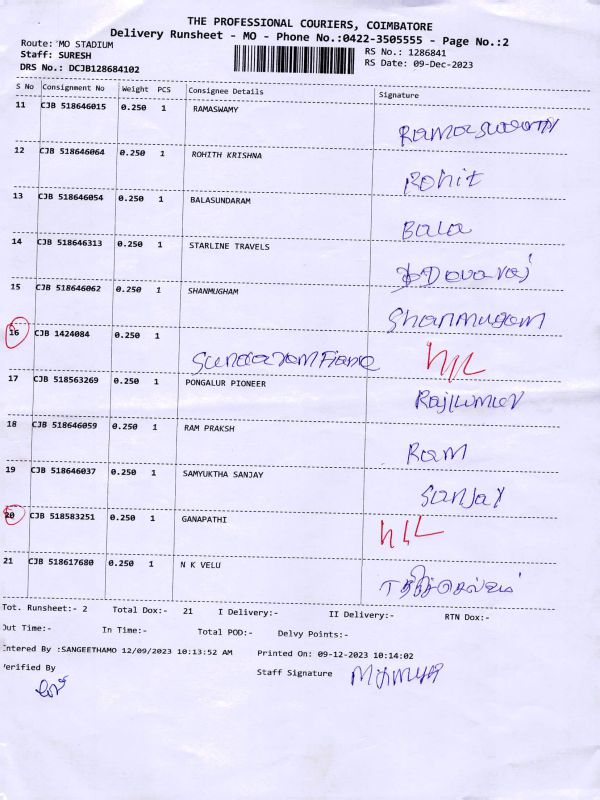 THE PROFESSIONAL COURIERS, COIMBATORE
Delivery Runsheet - MO - Phone No.:0422-3505555 - Page No.:2
Route: MO STADIUM
RS No.: 1286841
Staff: SURESH
RS Date: 09-Dec-2023
DRS No.: DCJB128684102
S No Consignment No Weight PCS Consignee Details Signature
11 CJB 518646015 0.250 1 RAMASWAMY Ramaswamy
12 CJB 518646064 0.250 1 ROHITH KRISHNA Rohit
13 CJB 518646054 0.250 1 BALASUNDARAM Bala
14 CJB 518646313 0.250 1 STARLINE TRAVELS
15 CJB 518646062 0.250 1 SHANMUGHAM Shanmugam
16 CJB 1424084 0.250 1 Sundaram
17 CJB 518563269 0.250 1 PONGALUR PIONEER Rajkumar
18 CJB 518646059 0.250 1 RAM PRAKSH Ram
19 CJB 518646037 0.250 1 SAMYUKTHA SANJAY Sanjay
20 CJB 518583251 0.250 1 GANAPATHI
21 CJB 518617680 0.250 1 N K VELU
Tot. Runsheet:- 2 Total Dox:- 21 I Delivery:- II Delivery:- RTN Dox:-
Out Time:- In Time:- Total POD:- Delvy Points:-
Entered By :SANGEETHAMO 12/09/2023 10:13:52 AM Printed On: 09-12-2023 10:14:02
Verified By Staff Signature